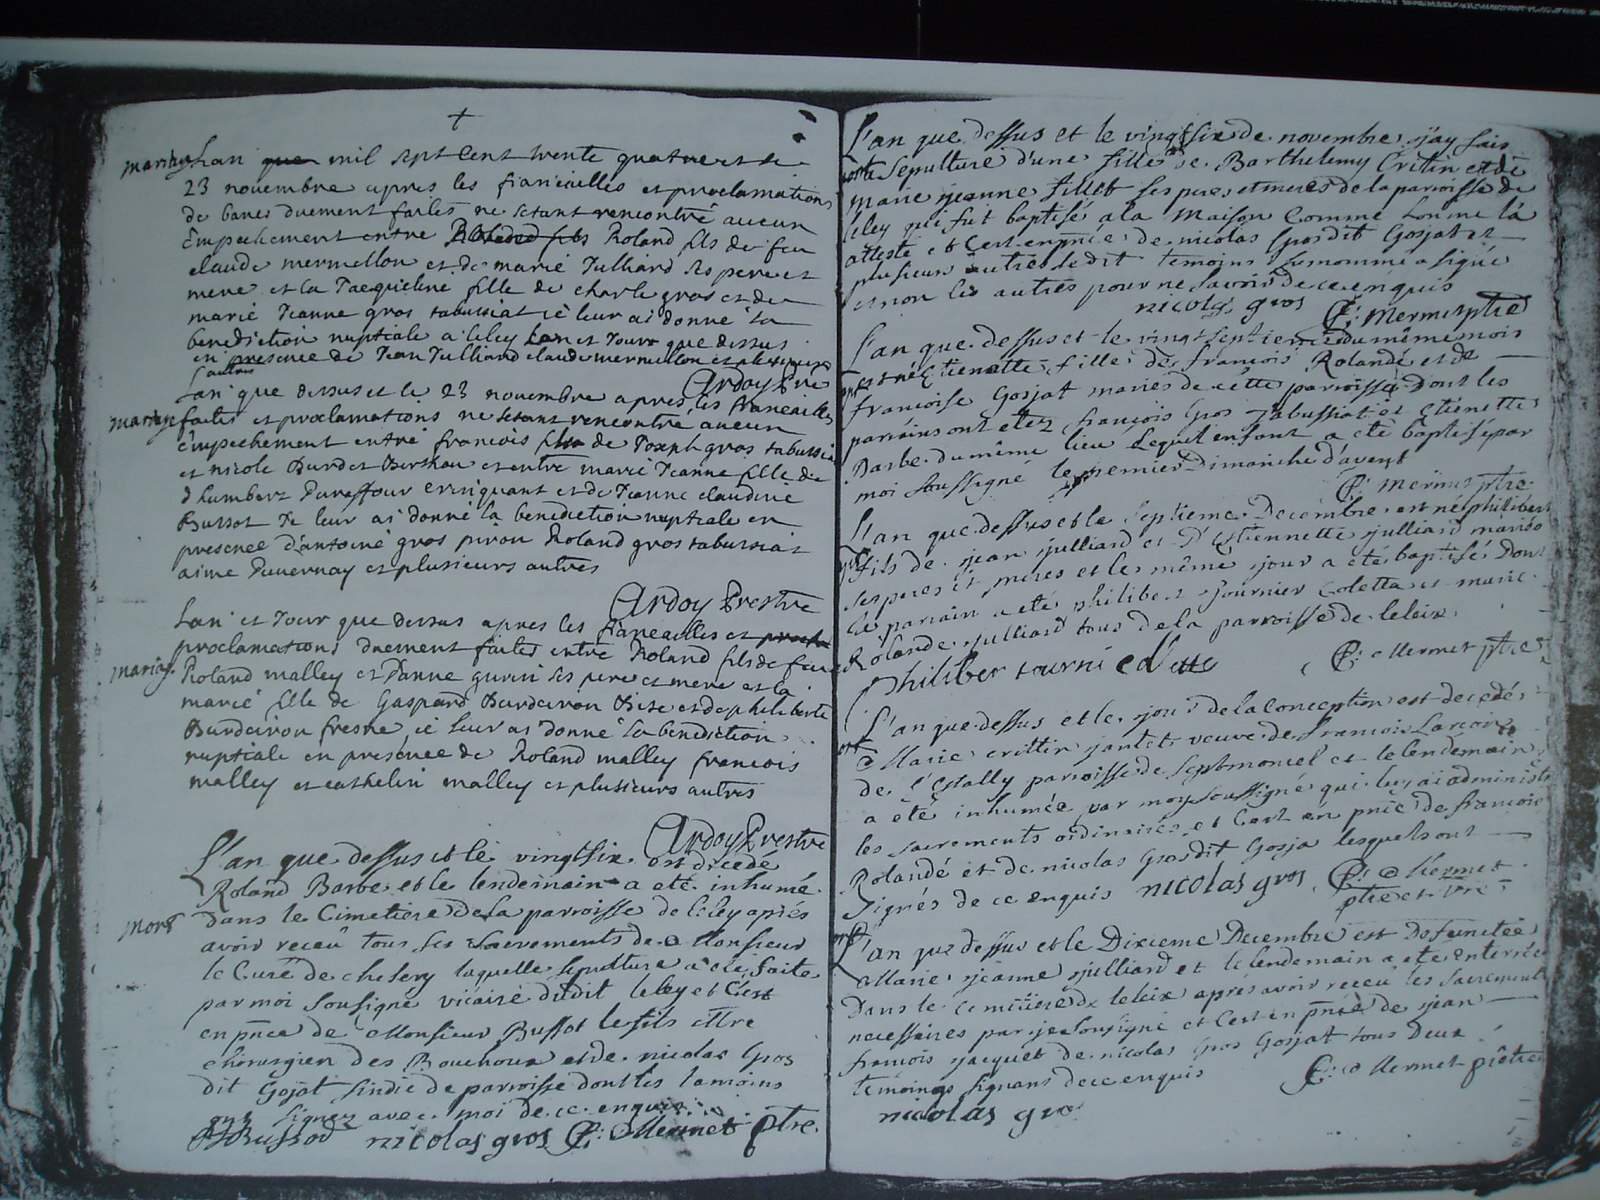 +
mariage Lan que mil sept cent trente quatre et le
23 novembre apres les fiancailles et proclamations
de bancs duement faites ne setant rencontré aucun
Empechement entre Roland fils Roland fils de feu
claude mermillon et de marie Julliard ses pere et
mere et la Jacqueline fille de charle gros et de
marie Jeanne gros tabussiat ie leur ai donné la
benediction nuptiale a leley Lan et Jour que dessus
en presence de Jean Julliard claude mermillon et plusieurs
autres
Ardoy Pre
Lan que dessus et le 23 novembre apres les fiancailles
mariage faites et proclamations ne setant rencontré aucun
Empechement entre francois fils de Joseph gros tabussia
et nicole Burdet et entre marie Jeanne fille de
d'humbert et de Jeanne claudine
Bussot Je leur ai donné la benediction nuptiale en
presence d'antoine gros piron Roland gros tabussiat
aime Duvernay et plusieurs autres
Ardoy Prestre
Lan et Jour que dessus apres les fiancailles et
proclamations duement faites entre Roland fils de feu
mariag. Roland malley et Janne guvin ses pere et mere et la
marie fille de Gaspard Burdeiron Bise et de philiberte
Burdeiron fresne ie leur ai donné la benediction
nuptiale en presence de Roland malley francois
malley et cathelin malley et plusieurs autres
Ardoy Prestre
L'an que dessus et le vingtsix est decedé
Roland Barbe et le lendemain a eté inhumé
mort dans le Cimetiere de la parroisse de leley aprés
avoir receu tous ses sacrements de Monsieur
le Curé de chesery laquelle sepulture a été faite
par moi sousigné vicaire dudit leley et C'est
en pnce de Monsieur Bussot le fils Mtre
chirurgien des Bouchoux et de nicolas Gros
dit Gojat sindic de parroisse dont les tamoins
ont signez avec moi de ce enquis
Bussod nicolas gros C: Mermet ptre.
L'an que dessus et le vingtsix de novembre j'ay fait
la sepulture d'une fille de Barthelemy Crittin et de
marie jeanne fillet ses peres et meres de la parroisse de
leley qui fut baptisé a la maison Comme l'on me l'a
attesté et C'est en pnce de nicolas Gros dit Gosjat et
plusieurs autres ledit temoins sesnommé a signé
et non les autres pour ne savoir de ce enquis
nicolas gros C: Mermet ptre
L'an que dessus et le vingt sept du même mois
est né Etienette fille de françois Rolandé et de
francoise Gosjat mariés de cette parroisse Dont les
parrains ont etez françois Gros Tabussiat et etienette
Barbe du même lieu Lequel enfant a eté baptisé par
moi soussigné le premier Dimanche d'avent
C: Mermet ptre
L'an que dessus et le septieme Decembre est né philibert
fils de jean julliard et D'Estiennette julliard mariés
ses peres et meres et le même jour a eté baptisés Dont
le parrain a eté philibert fournier Coletta et marie
Rolande julliard tous de la parroisse de leleix
philiber tourni C: Mermet ptre
L'an que dessus et le jour de la Conception est decedé
Marie crittin jantet veuve de francois Lançon
de l'Estally parroisse de Septmoncel et le lendemain
a été inhumée par moy soussigné qui luy ai administré
les sacrements ordinaires et C'est en pnce de francois
Rolandé et de nicolas Gros dit Gosja lesquels ont
signés de ce enquis nicolas gros C: Mermet
ptre et vre
L'an que dessus et le Dixieme Decembre est Defunctée
Marie jeanne julliard et le lendemain a eté enterrée
Dans le Cimitiere de leleix apres avoir receu les sacrements
necessaires par je sousigné et C'est en pnce de jean
françois jacquet de nicolas Gros Gosjat tous deux
temoings signans de ce enquis C: Mermet prêtre
nicolas gro